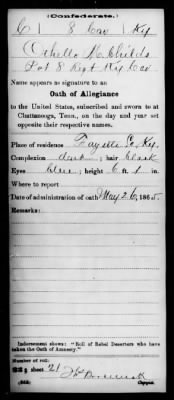 (Confederate.)
C | 8 Cav | Ky
Othello M. Childs
Pvt 8 Regt Ky Cav
Name appears as signature to an
Oath of Allegiance
to the United States, subscribed and sworn to at
Chattanooga, Tenn., on the day and year set
opposite their respective names.
Place of residence Fayette Co, Ky.
Complexion dark ; hair black
Eyes blue ; height 6 ft. 1 in.
Where to report
Date of administration of oath May 26, 1865.
Remarks:
Indorsement shows: "Roll of Rebel Deserters who have
taken the Oath of Amnesty."
Number of roll:
sheet 21
Copyist.